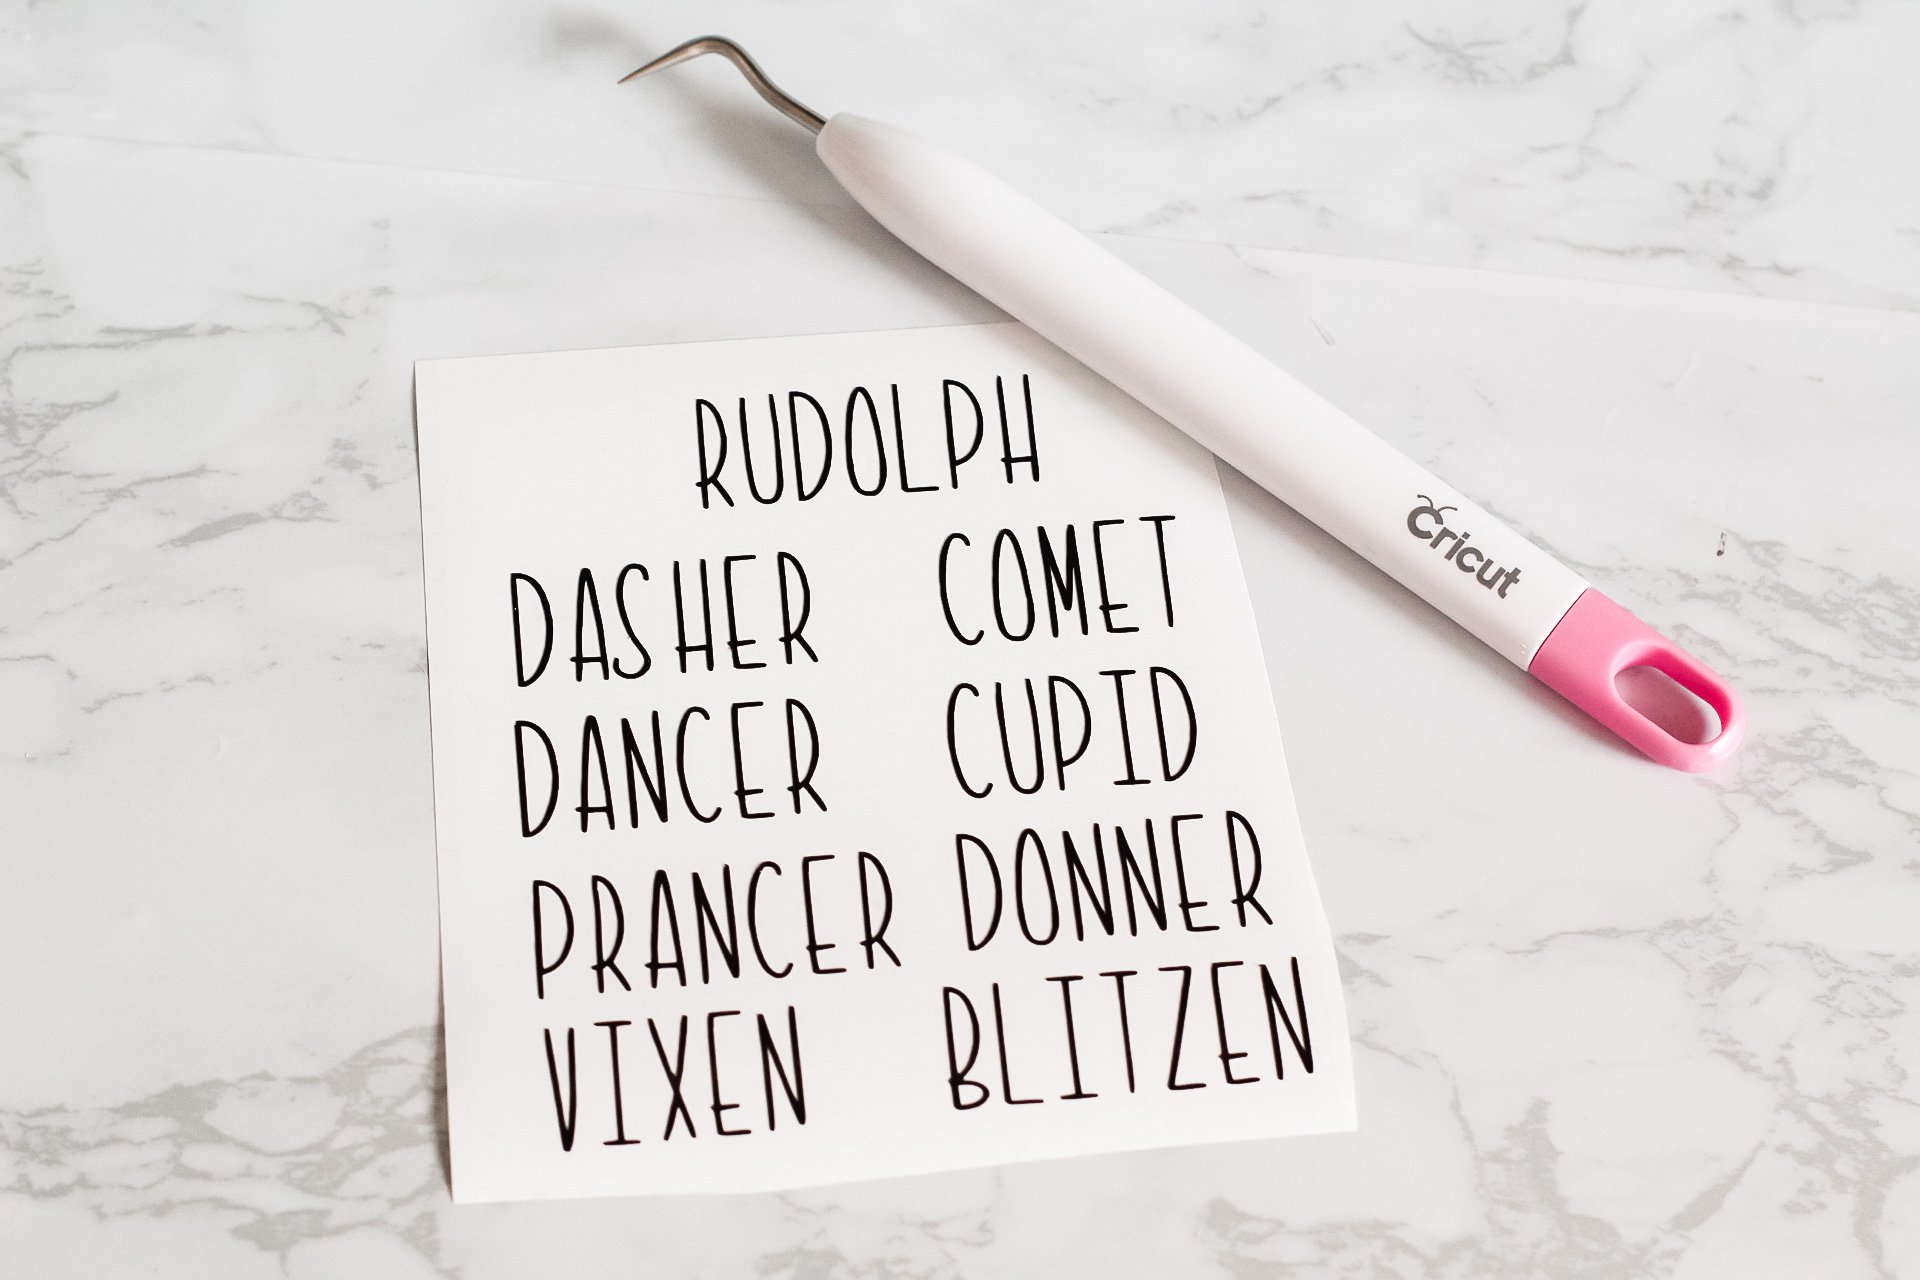 RUDOLPH
DASHER COMET
DANCER CUPID
PRANCER DONNER
VIXEN BLITZEN
Cricut